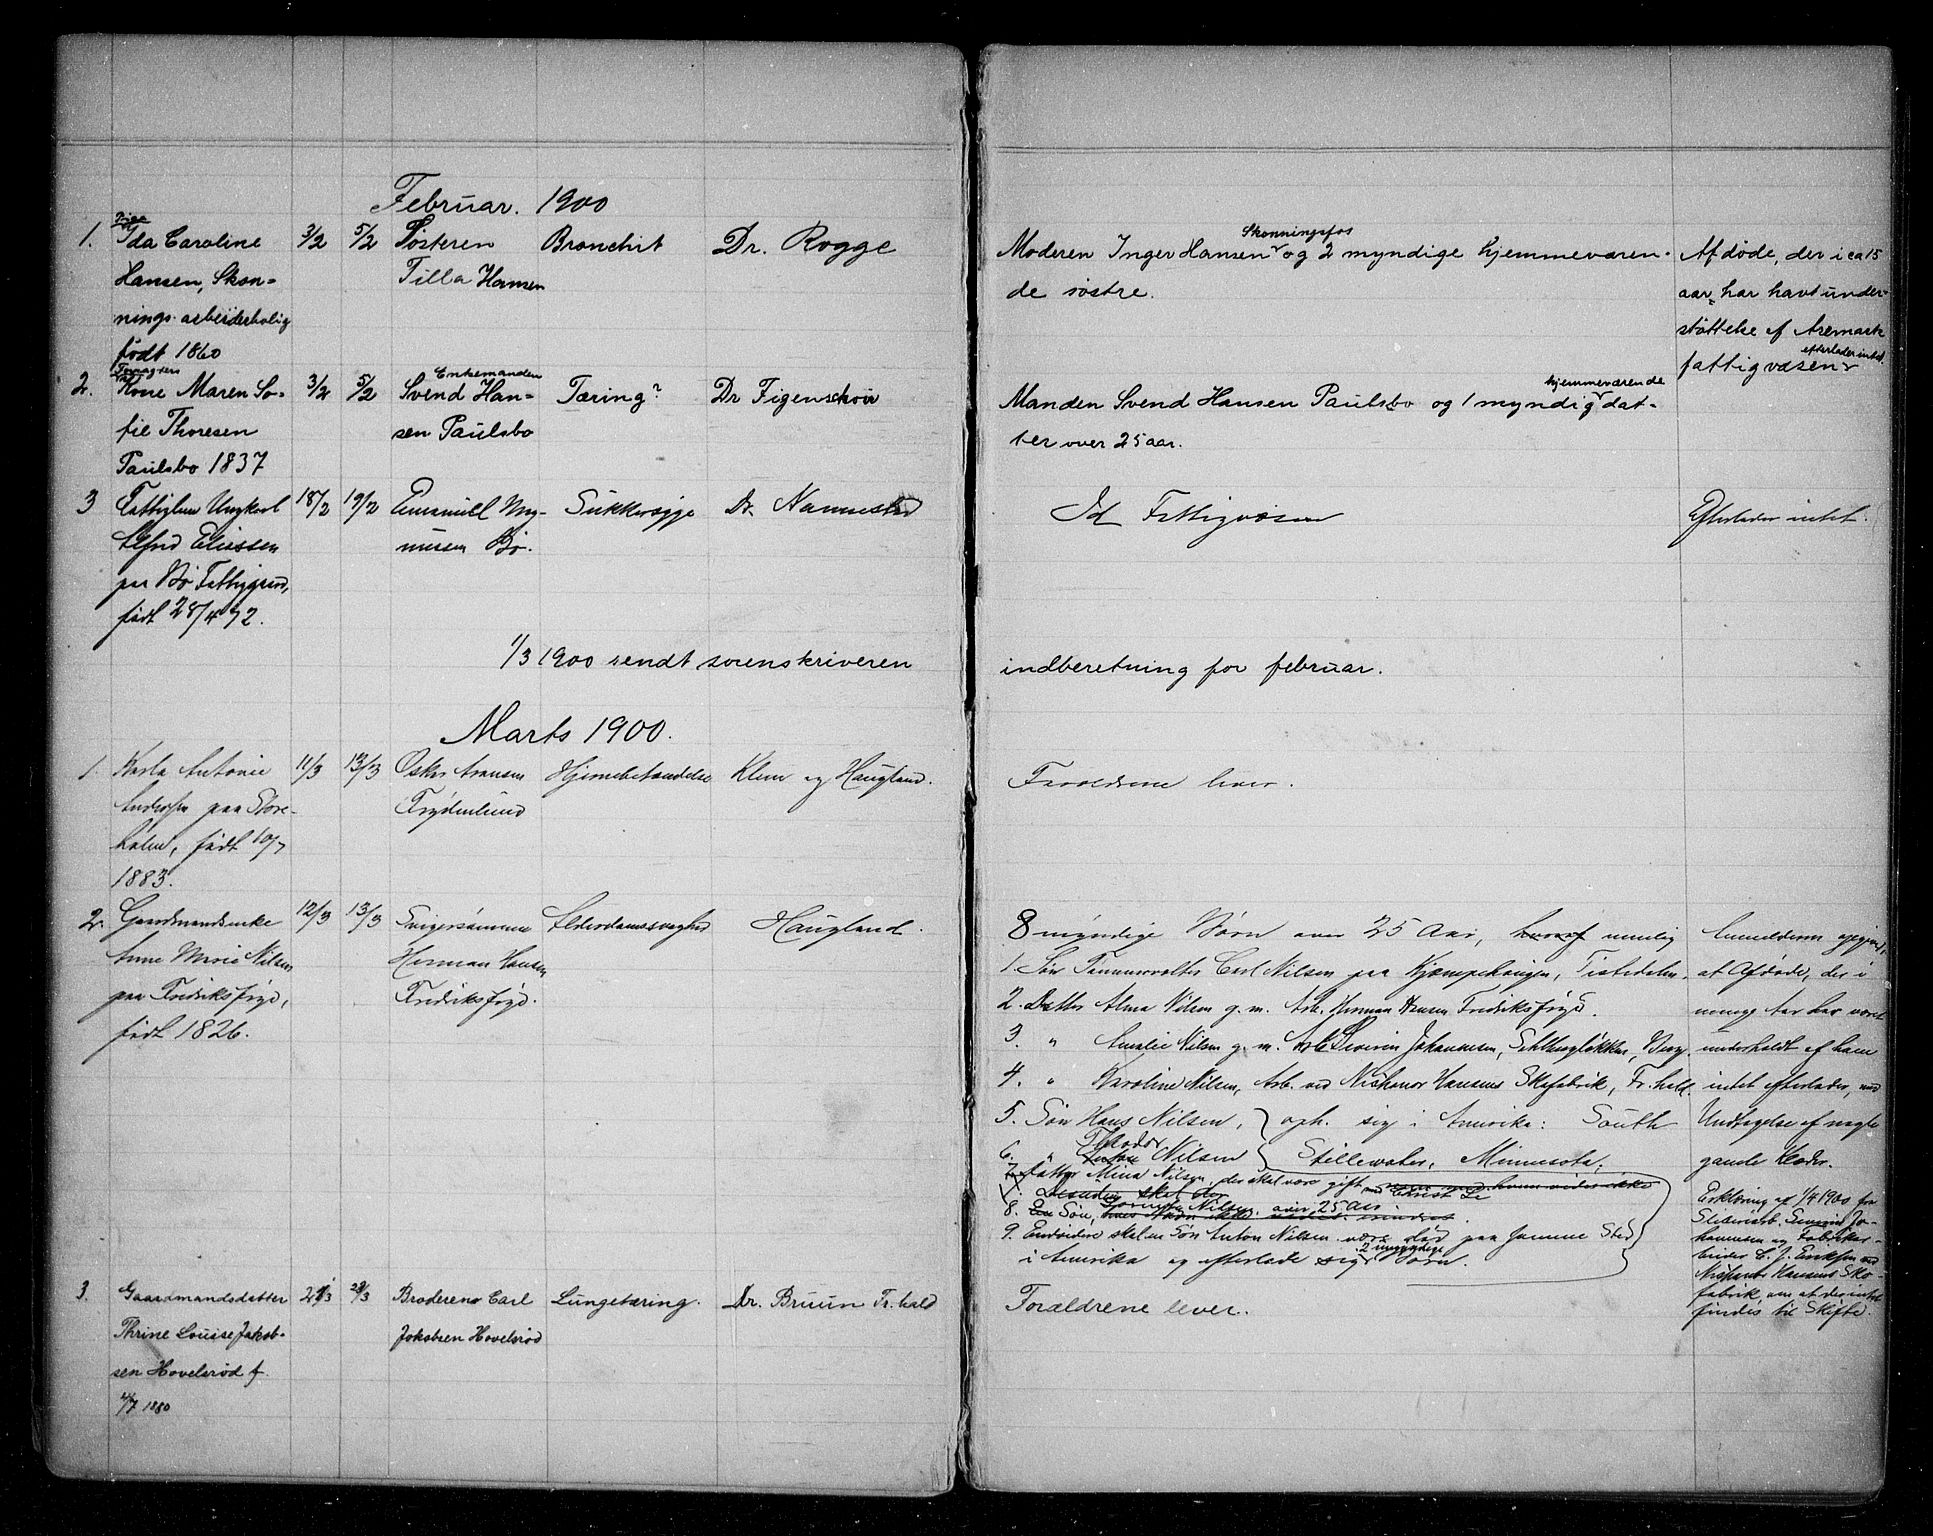 Februar. 1900
1. Pige Ida Caroline 3/2 5/2 Søsteren Bronchit Dr. Rogge
Hansen, Skon- Tilla Hansen
nings arbeiderbolig
født 1860
Moderen Inger Hansen Skonningsfos og 2 myndige hjemmeværen-
de søstre.
Afdøde, der i ca 15
aar, har havt under-
støttelse af Aremark
fattigvæsen efterlader intet.
2. Kone Maren So- 3/2 5/2 Enkemanden Svend Han- Tæring? Dr Figenschou
fie Thoresen sen Paulsbo
Paulsbo 1837
Manden Svend Hansen Paulsbo og 1 myndig hjemmeværende dat-
ter over 25 aar.
3 Fattiglem Ungkarl 18/2 19/2 Emanuel Mag- Sukkersyge Dr. Nannestad
Alfred Eliassen nussen Bø.
paa Bø Fattiggaard,
født 28/4 72.
Id Fattigvæsen
Efterlader intet.
1/3 1900 sendt sorenskriveren indberetning for februar.
Marts 1900.
1. Karla Antonie 11/3 13/3 Oskar Aransen Hjernebetændelse Klem og Haugland.
Andersen paa Store- Frydenlund
holm, født 10/7
1883.
Forældrene lever.
2. Gaardmandsenke 12/3 13/3 Svigersønnen Alderdomssvaghed Haugland.
Anne Marie Nilsen Herman Hansen
paa Fredriksfryd, Fredriksfryd.
født 1826.
8 myndige Børn over 25 Aar, hvoraf nemlig
1. Søn Tømmervolter Carl Nilsen paa Kjæmpehaugen, Tistedalen.
2. Datter Alma Nilsen g. m. Arb. Herman Hansen Fredriksfryd.
3. " Amalie Nilsen g. m. Arb. Severin Johannesen, Berg.
4. " Karoline Nilsen, Arb. ved Nickanor Hansens Skofabrik, Fr.hald.
5. Søn Hans Nilsen, oph. sig i Amerika: South
6. " Theodor Nilsen Stillewater, Minnesota.
7. Datter Mina Nilsen, der skal være gift med
Desuden skal der
8. En Søn, Nilsen over 25 Aar
9. Endvidere skal en Søn Anton Nilsen være død paa samme Sted
i Amerika og efterlade sig 2 umyndige Børn.
Anmelderen opgiver,
at Afdøde, der i
mange Aar har været
underholdt af ham
intet efterlader, med
Undtagelse af nogle
gamle Klæder.
Erklæring af 1/4 1900 fra
Sliberiarb. Severin Jo-
hannesen og Fabrikar-
beider C. J. Eriksen ved
Nickanor Hansens Sko-
fabrik, om at der intet
findes til Skifte.
3. Gaardmandsdatter 21/3 23/3 Broderen Carl Lungetæring. Dr. Bruun Fr.hald
Thrine Louise Jakob- Jakobsen Hovelsrød
sen Hovelsrød f.
4/7 1880
Forældrene lever.